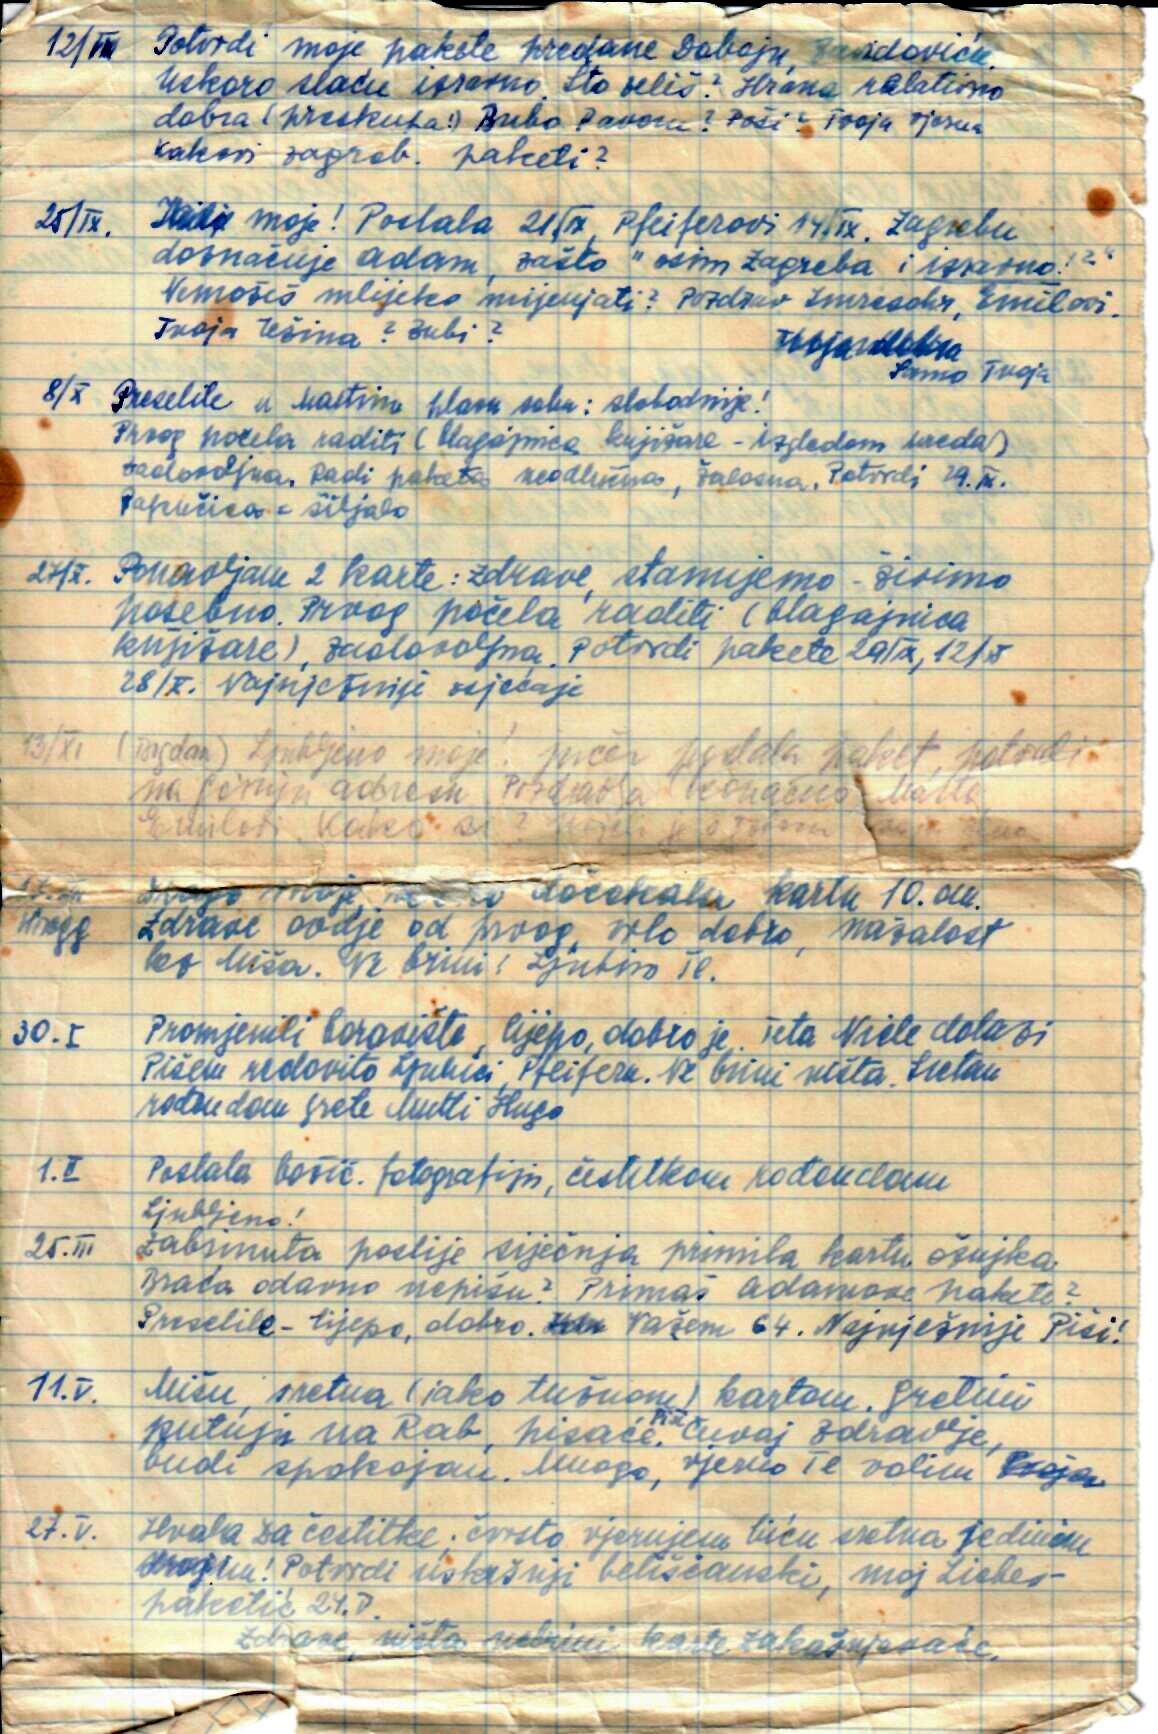 12/VIII Potvrdi moje pakete predane Doboju,
Uskoro slaću izravno. Što veliš? Hrana relativno
dobra (preskupa!) Bubo Pavom? Poši? Tvoja vjerna
kakovi zagreb. paketi?
25/IX. moje! Poslala 21/IX, Pfeiferovi 14/IX. Zagrebu
doznačuje Adam, zašto "osim Zagreba i izravno!?"
Nemožeš mlijeko mijenjati? Pozdrav Emilovi.
Tvoja težina? Zubi?
Samo Tvoja
8/X Preselite u Martinu plavu sobu: slobodnije!
Prvog počela raditi (blagajnica knjižare - izgledom ureda)
zadovoljna. Radi paketa neodlučna, žalosna. Potvrdi 29.IX.
Papučica = šiljalo
27/X. Ponavljam 2 karte: zdrave, stanujemo - živimo
posebno. Prvog počela raditi (blagajnica
knjižare), zadovoljna. Potvrdi pakete 29/IX, 12/X
28/X. Najnježnije osjećaje
13/XI Ljubljeno moje! jučer poslala paket, potvrdi
na gornju adresu
Emilovi. Kako si?
dočekala kartu 10. ou.
Zdrave ovdje od prvog, vrlo dobro, nažalost
bez Miša. Ne brini! Ljubim Te.
30.I Promjenili boravište, lijepo, dobro je. Teta Nićle dolazi
Pišem redovito Ljubici, Pfeiferu. Ne brini ništa. Sretan
rođendan Grete Mutti Hugo
1.II Poslala božić. fotografiju, čestitkom rođendanu
Ljubljeno!
25.III Zabrinuta poslije siječnja primila kartu ožujka
Braća odavno nepišu? Primaš Adamove pakete?
Preselile - lijepo, dobro. Vašem 64. Najnježnije Piši!
11.V. Mišu, sretna (iako tužnom) kartom. Gretini
putuju na Rab, pisaće. Piši Čuvaj zdravlje,
budi spokojan. Mnogo, vjerno Te volim Tvoja
27.V. Hvala za čestitke, čvrsto vjerujem biću sretna jedinim
dragim! Potvrdi uskršnji belišćanski, moj Liebes-
paketić 24.V.
Zdrave, ništa nebrini karte zakašnjavaće.